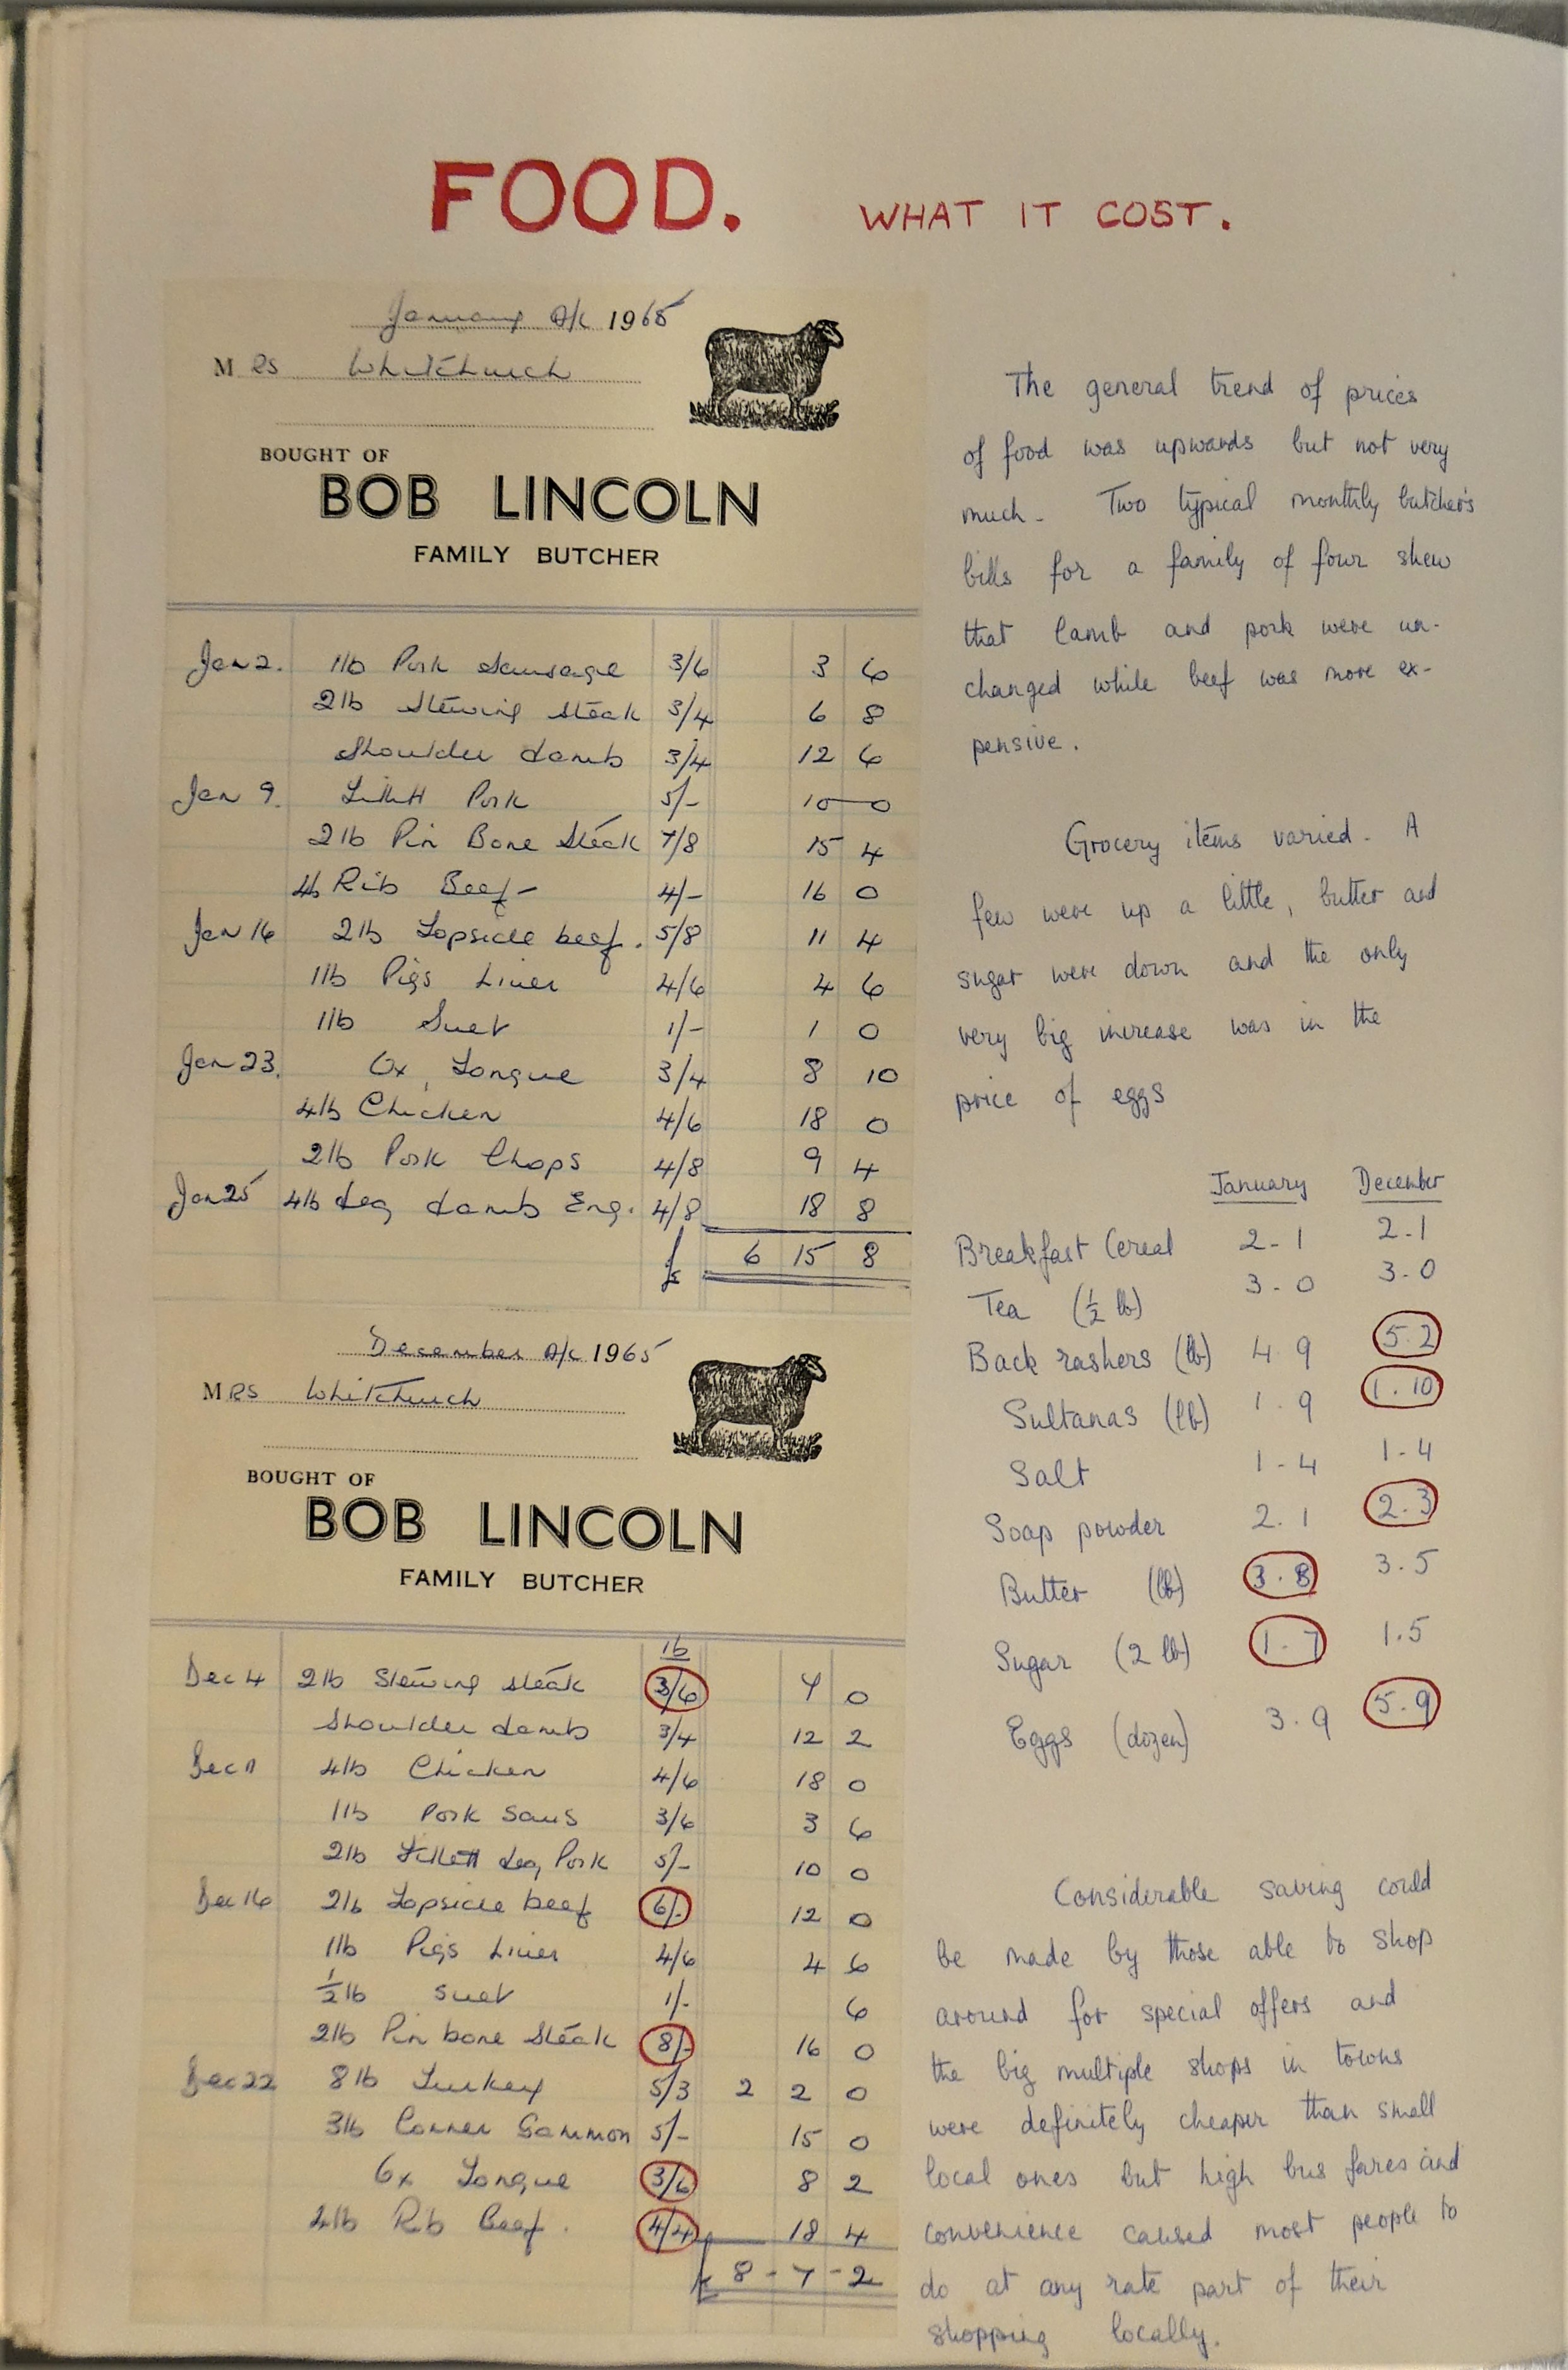 FOOD. WHAT IT COST.
January A/c 1965
MRS Whitchurch
BOUGHT OF
BOB LINCOLN
FAMILY BUTCHER
Jan 2. 1lb Pork Sausage 3/6 3 6
2lb Stewing Steak 3/4 6 8
Shoulder Lamb 3/4 12 6
Jan 9. Pork 5/- 10 0
2lb Pin Bone Steak 7/8 15 4
4lb Rib Beef 4/- 16 0
Jan 16 2lb Topside beef. 5/8 11 4
1lb Pigs Liver 4/6 4 6
1lb Suet 1/- 1 0
Jan 23. Ox Tongue 3/4 8 10
4lb Chicken 4/6 18 0
2lb Pork Chops 4/8 9 4
Jan 25 4lb Leg Lamb Eng. 4/8 18 8
£ 6 15 8
December A/c 1965
MRS Whitchurch
BOUGHT OF
BOB LINCOLN
FAMILY BUTCHER
lb
Dec 4 2lb Stewing steak 3/6 7 0
Shoulder Lamb 3/4 12 2
Dec 11 4lb Chicken 4/6 18 0
1lb Pork Saus 3/6 3 6
2lb Fillett Leg Pork 5/- 10 0
Dec 16 2lb Topside beef 6/- 12 0
1lb Pigs Liver 4/6 4 6
½lb Suet 1/- 6
2lb Pin bone Steak 8/- 16 0
Dec 22 8lb Turkey 5/3 2 2 0
3lb Corner Gammon 5/- 15 0
Ox Tongue 3/6 8 2
4lb Rib Beef. 4/4 18 4
£ 8 - 7 - 2
The general trend of prices
of food was upwards but not very
much. Two typical monthly butcher's
bills for a family of four shew
that lamb and pork were un-
changed while beef was more ex-
pensive.
Grocery items varied. A
few were up a little, butter and
sugar were down and the only
very big increase was in the
price of eggs
January December
Breakfast Cereal 2-1 2-1
Tea (½ lb) 3-0 3-0
Back rashers (lb) 4 9 5.2
Sultanas (lb) 1.9 1.10
Salt 1-4 1-4
Soap powder 2.1 2.3
Butter (lb) 3.8 3.5
Sugar (2 lb) 1.7 1.5
Eggs (dozen) 3.9 5.9
Considerable saving could
be made by those able to shop
around for special offers and
the big multiple shops in towns
were definitely cheaper than small
local ones but high bus fares and
convenience caused most people to
do at any rate part of their
shopping locally.